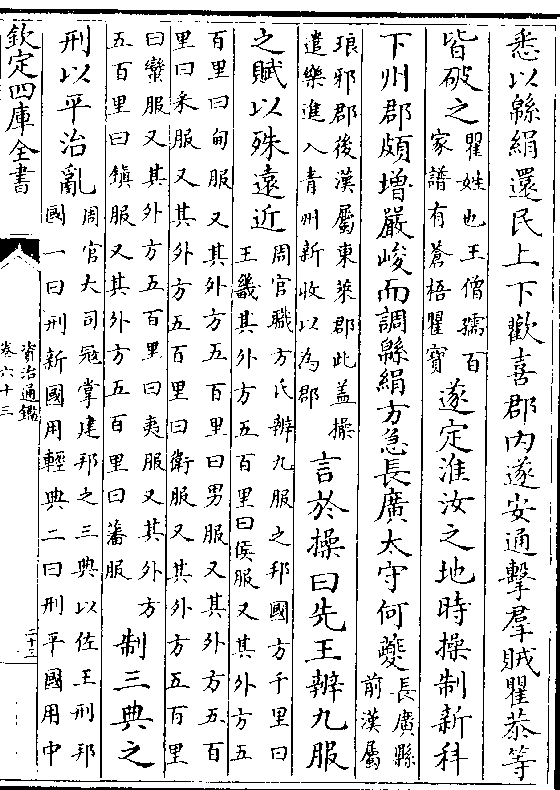 悉以緜絹還民上下歡喜郡内遂安通擊羣賊瞿恭等
皆破之
瞿姓也王僧孺百
家譜有蒼梧瞿寶
遂定淮汝之地時操制新科
下州郡頗增嚴峻而調緜絹方急長廣太守何夔
長廣縣
前漢屬
琅邪郡後漢屬東萊郡此盖操
遣樂進入青州新收以為郡
言於操曰先王辨九服
之賦以殊遠近
周官職方氏辨九服之邦國方千里曰
王畿其外方五百里曰侯服又其外方五
百里曰甸服又其外方五百里曰男服又其外方五百
里曰采服又其外方五百里曰衛服又其外方五百里
曰蠻服又其外方五百里曰夷服又其外方
五百里曰鎮服又其外方五百里曰藩服
制三典之
刑以平治亂
周官大司冦掌建邦之三典以佐王刑邦
國一曰刑新國用輕典二曰刑平國用中
欽定四庫全書
資治通鑑
卷六十三